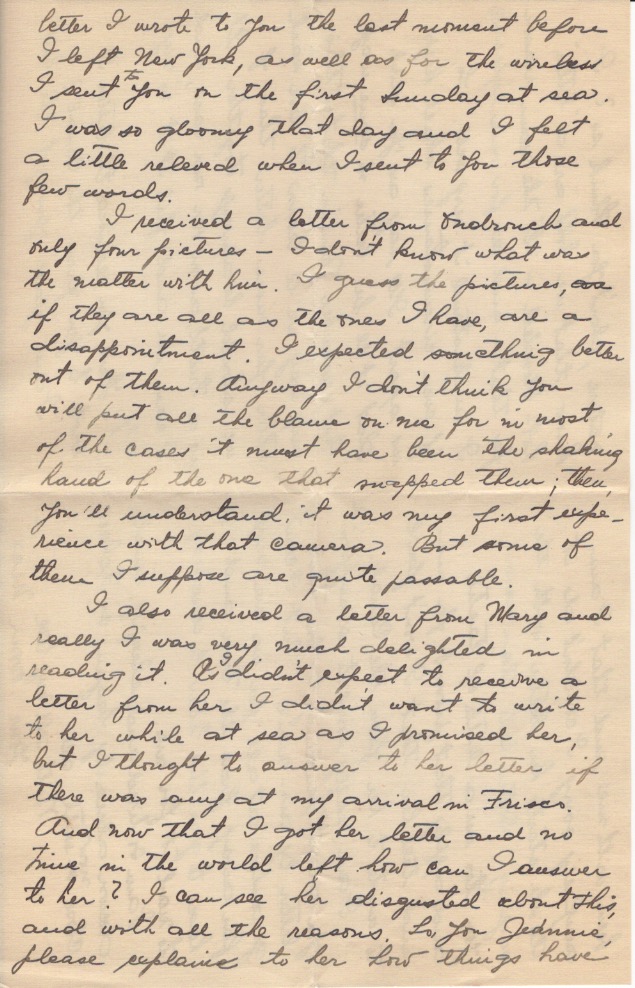 letter I wrote to You the last moment before
I left New York, as well as for the wireless
I sent to You on the first Sunday at sea.
I was so gloomy that day and I felt
a little releved when I sent to You those
few words.
I received a letter from Ondrouch and
only four pictures – I don't know what was
the matter with him. I guess the pictures, as
if they are all as the ones I have, are a
disappointment. I expected something better
out of them. Anyway I don't think You
will put all the blame on me for in most
of the cases it must have been the shaking
hand of the one that snepped them; then,
You'll understand, it was my first expe-
rience with that camera. But some of
them I suppose are quite passable.
I also received a letter from Mary and
really I was very much delighted in
reading it. As I didn't expect to receive a
letter from her I didn't want to write
to her while at sea as I promised her,
but I thought to answer to her letter if
there was any at my arrival in Frisco.
And now that I got her letter and no
time in the world left how can I answer
to her? I can see her disgusted about this,
and with all the reasons. So, You Jeannie,
please explaine to her how things have